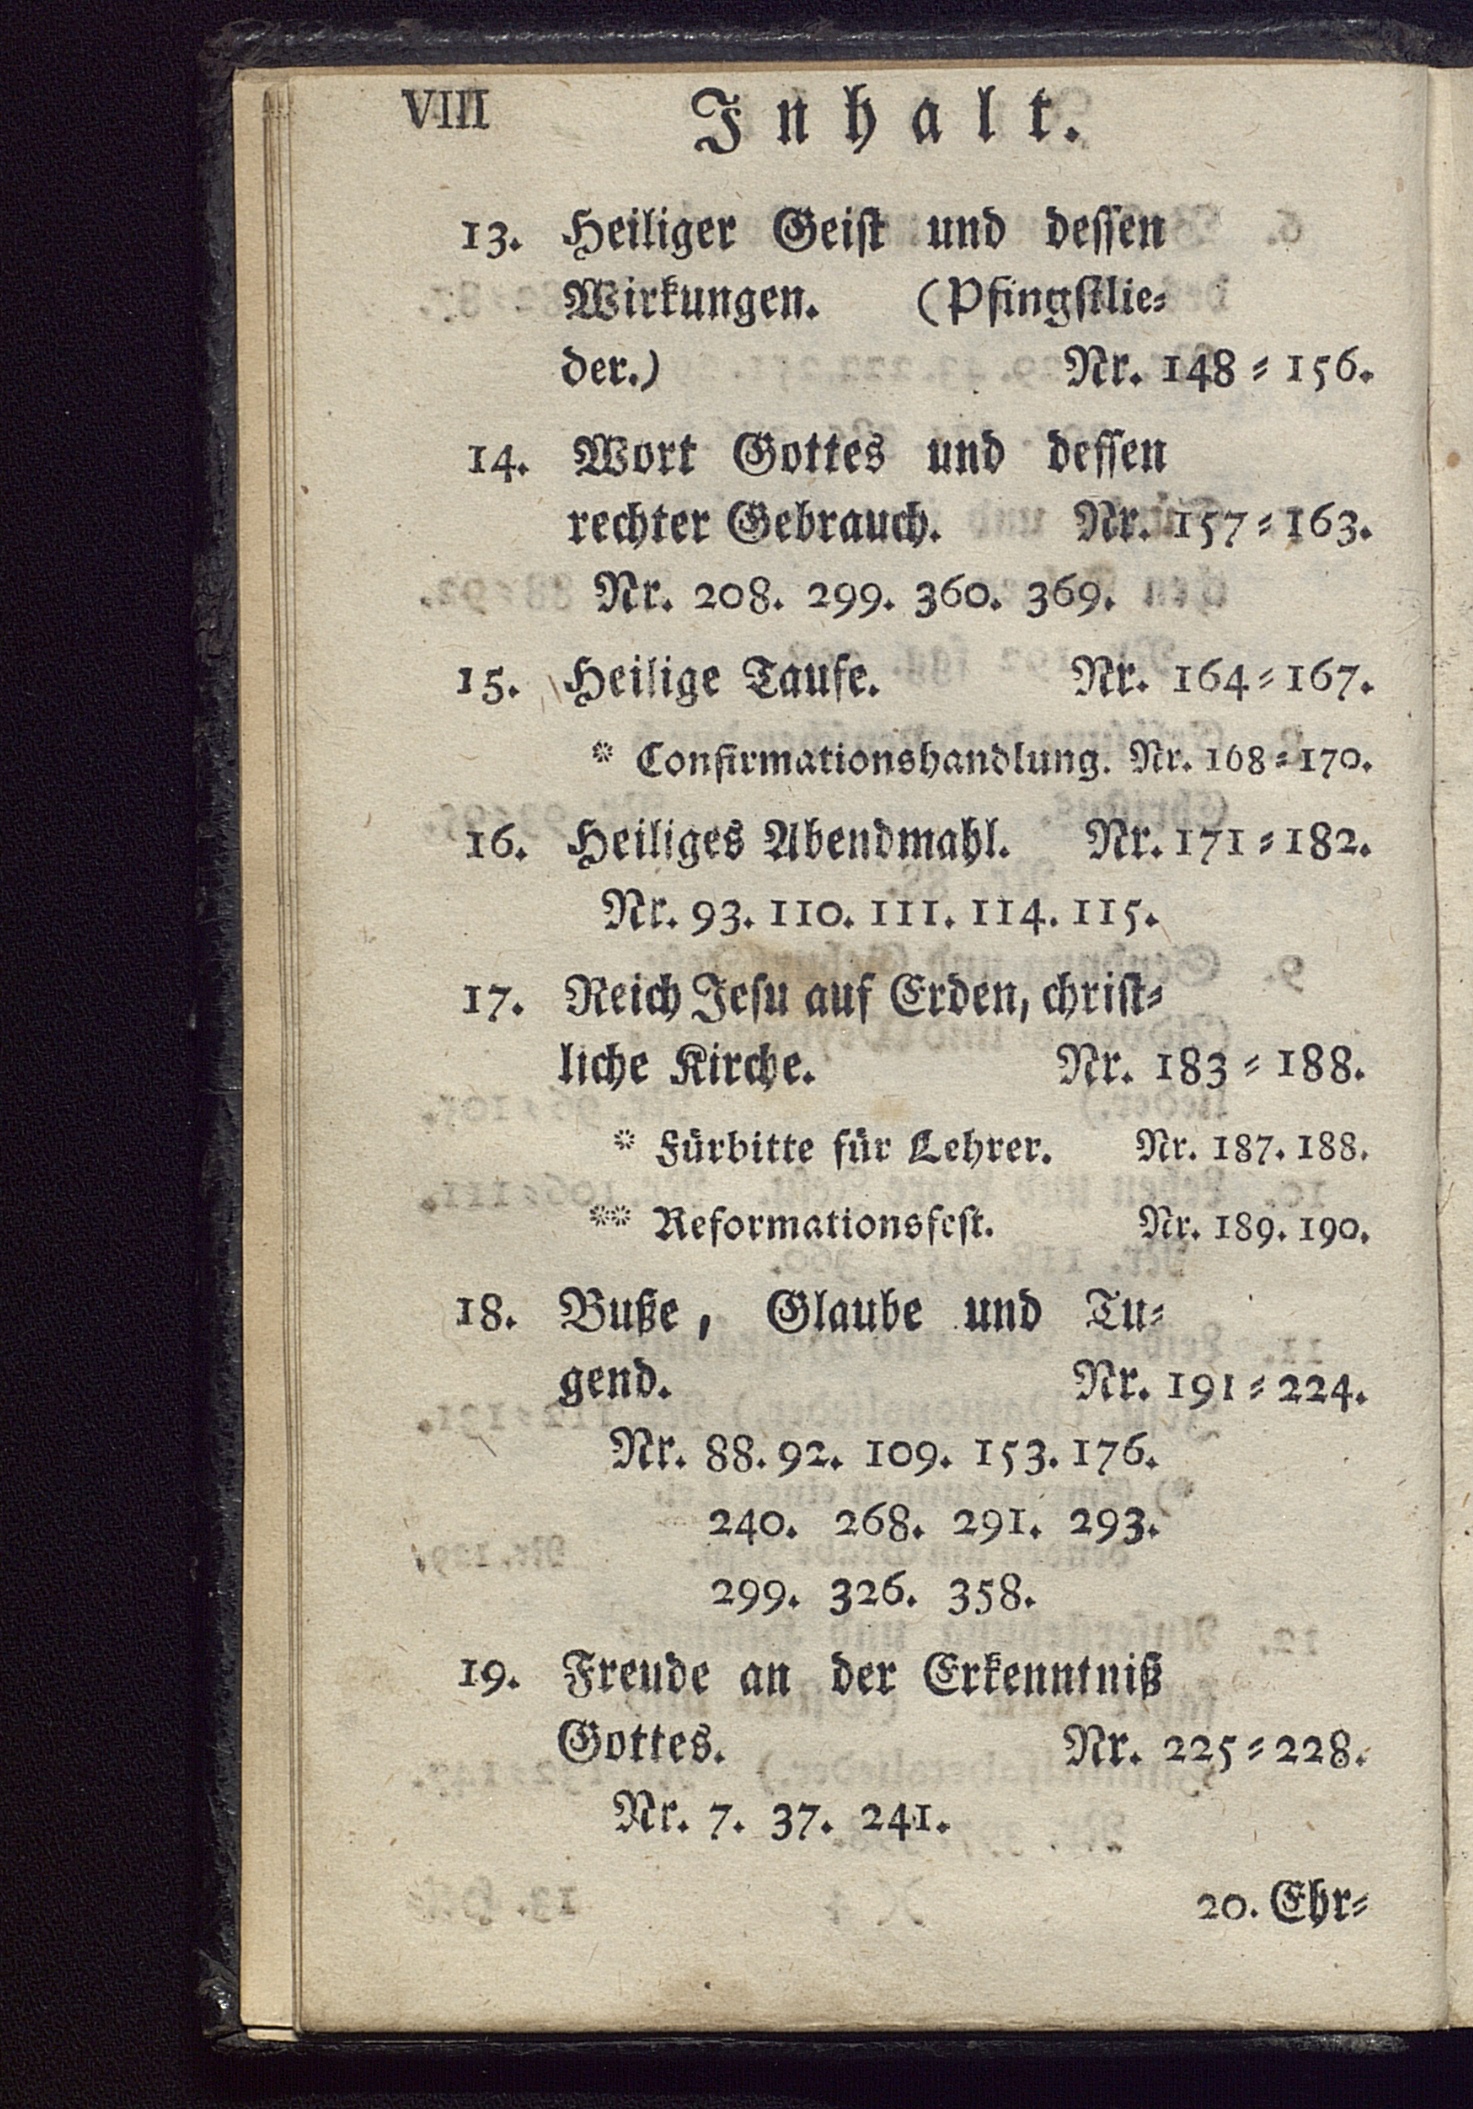 VIII Inhalt.
13. Heiliger Geiſt und deſſen
Wirkungen. (Pfingſtlie⸗
der.) Nr. 148⸗156.
14. Wort Gottes und deſſen
rechter Gebrauch. Nr. 157⸗163.
Nr. 208. 299. 360. 369.
15. Heilige Taufe. Nr. 164⸗167.
* Confirmationshandlung. Nr. 168⸗170.
16. Heiliges Abendmahl. Nr. 171⸗182.
Nr. 93. 110. 111. 114. 115.
17. Reich Jeſu auf Erden, chriſt⸗
liche Kirche. Nr. 183⸗188.
* Fürbitte für Lehrer. Nr. 187. 188.
** Reformationsfeſt. Nr. 189. 190.
18. Buße, Glaube und Tu⸗
gend. Nr. 191⸗224.
Nr. 88. 92. 109. 153. 176.
240. 268. 291. 293.
299. 326. 358.
19. Freude an der Erkenntniß
Gottes. Nr. 225⸗228.
Nr. 7. 37. 241.
20. Ehr⸗